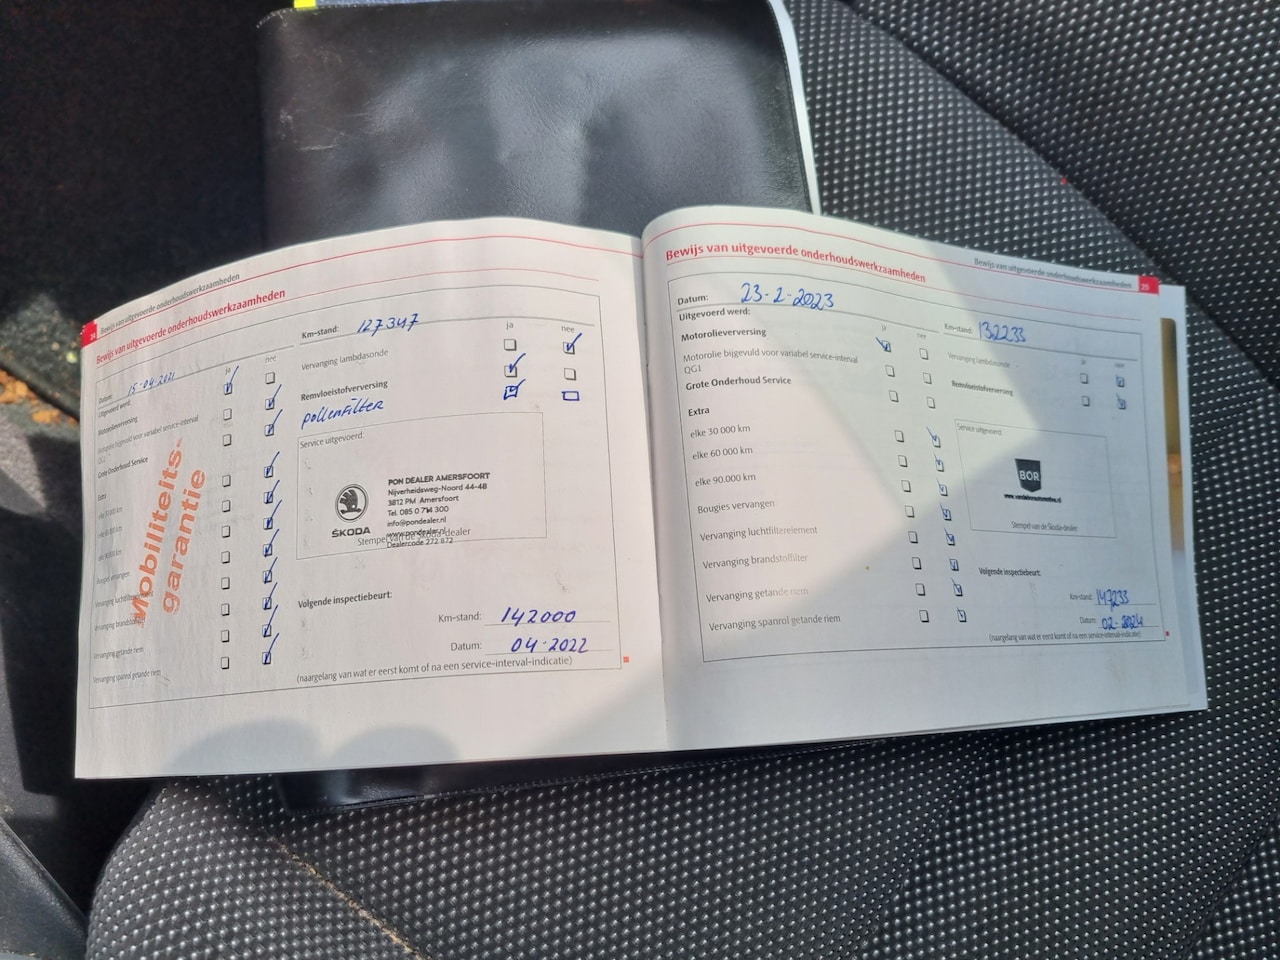 24 Bewijs van uitgevoerde onderhoudswerkzaamheden
Bewijs van uitgevoerde onderhoudswerkzaamheden
Datum: 15-04-2021
Km-stand: 127347
Uitgevoerd werd:
ja nee
ja nee
Motorolieverversing
Vervanging lambdasonde
Motorolie bijgevuld voor variabel service-interval
QG1
Remvloeistofverversing
Grote Onderhoud Service
pollenfilter
Extra
Service uitgevoerd:
elke 60 000 km
elke 90.000 km
Bougies vervangen
Vervanging
Vervanging
Vervanging getande riem
Vervanging spanrol getande riem
Mobiliteits-
garantie
ŠKODA
PON DEALER AMERSFOORT
Nijverheidsweg-Noord 44-48
3812 PM Amersfoort
Tel. 085 0 714 300
info@pondealer.nl
www.pondealer.nl
Dealercode 272 872
Stempel van de Skoda-dealer
Volgende inspectiebeurt:
Km-stand: 142000
Datum: 04-2022
(naargelang van wat er eerst komt of na een service-interval-indicatie)
Bewijs van uitgevoerde onderhoudswerkzaamheden 25
Bewijs van uitgevoerde onderhoudswerkzaamheden
Datum: 23-2-2023
Km-stand: 132233
Uitgevoerd werd:
ja nee
ja nee
Motorolieverversing
Vervanging lambdasonde
Motorolie bijgevuld voor variabel service-interval
QG1
Remvloeistofverversing
Grote Onderhoud Service
Extra
Service uitgevoerd:
elke 30 000 km
elke 60 000 km
elke 90.000 km
Bougies vervangen
Vervanging luchtfilterelement
Vervanging brandstoffilter
Vervanging getande riem
Vervanging spanrol getande riem
BOR
www.vandenborautomotive.nl
Stempel van de Skoda-dealer
Volgende inspectiebeurt:
Km-stand: 147233
Datum: 02-2024
(naargelang van wat er eerst komt of na een service-interval-indicatie)